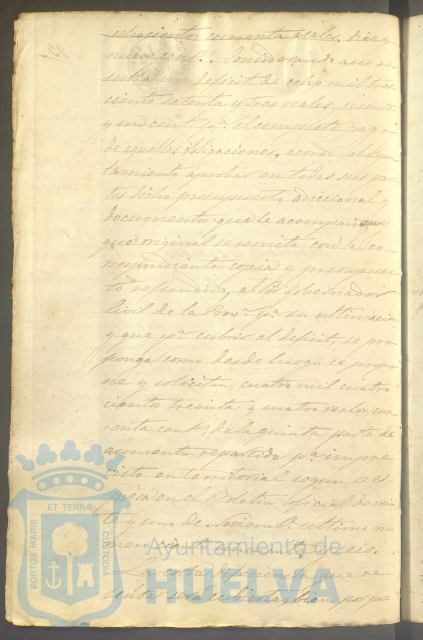 ochocientos cuarenta reales, diez y
nueve cent.s Considerando que re
sulta un deficit de ocho mil tres
ciento setenta y tres reales, sesenta
y un cent.s p.a el completo pago
de aquellas obligaciones, acordó el Ayun
tamiento aprobar en todas sus par
tes dicho presupuesto adiccional y
documentos que le acompañan y
que original se remita con la co
rrespondiente copia y presupues
to refundido, al Sor. Gobernador
Civil de la Prov.a p.a su ultimacion
y que p.a cubrir el deficit, se pro
ponga como desde luego se propo
ne y solicita, cuatro mil cuatro
cientos treinta y cuatro reales, cua
renta cent.s, de la quinta parte de
aumento repartido p.a impre
visto en territorial segun se es
presa en el Boletin oficial de vein
te y uno de Noviembre ultimo nu
mero ciento
La otra que re
sulta sera cubierta, bien, por que
PORTUS MARIS
ET TERRÆ
CUSTODIA
Ayuntamiento de
HUELVA